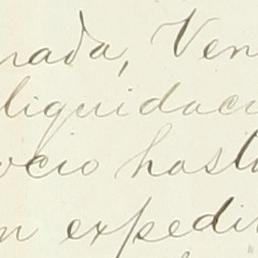 nada, Ven
liquidaci
ocio hasta
n expedi